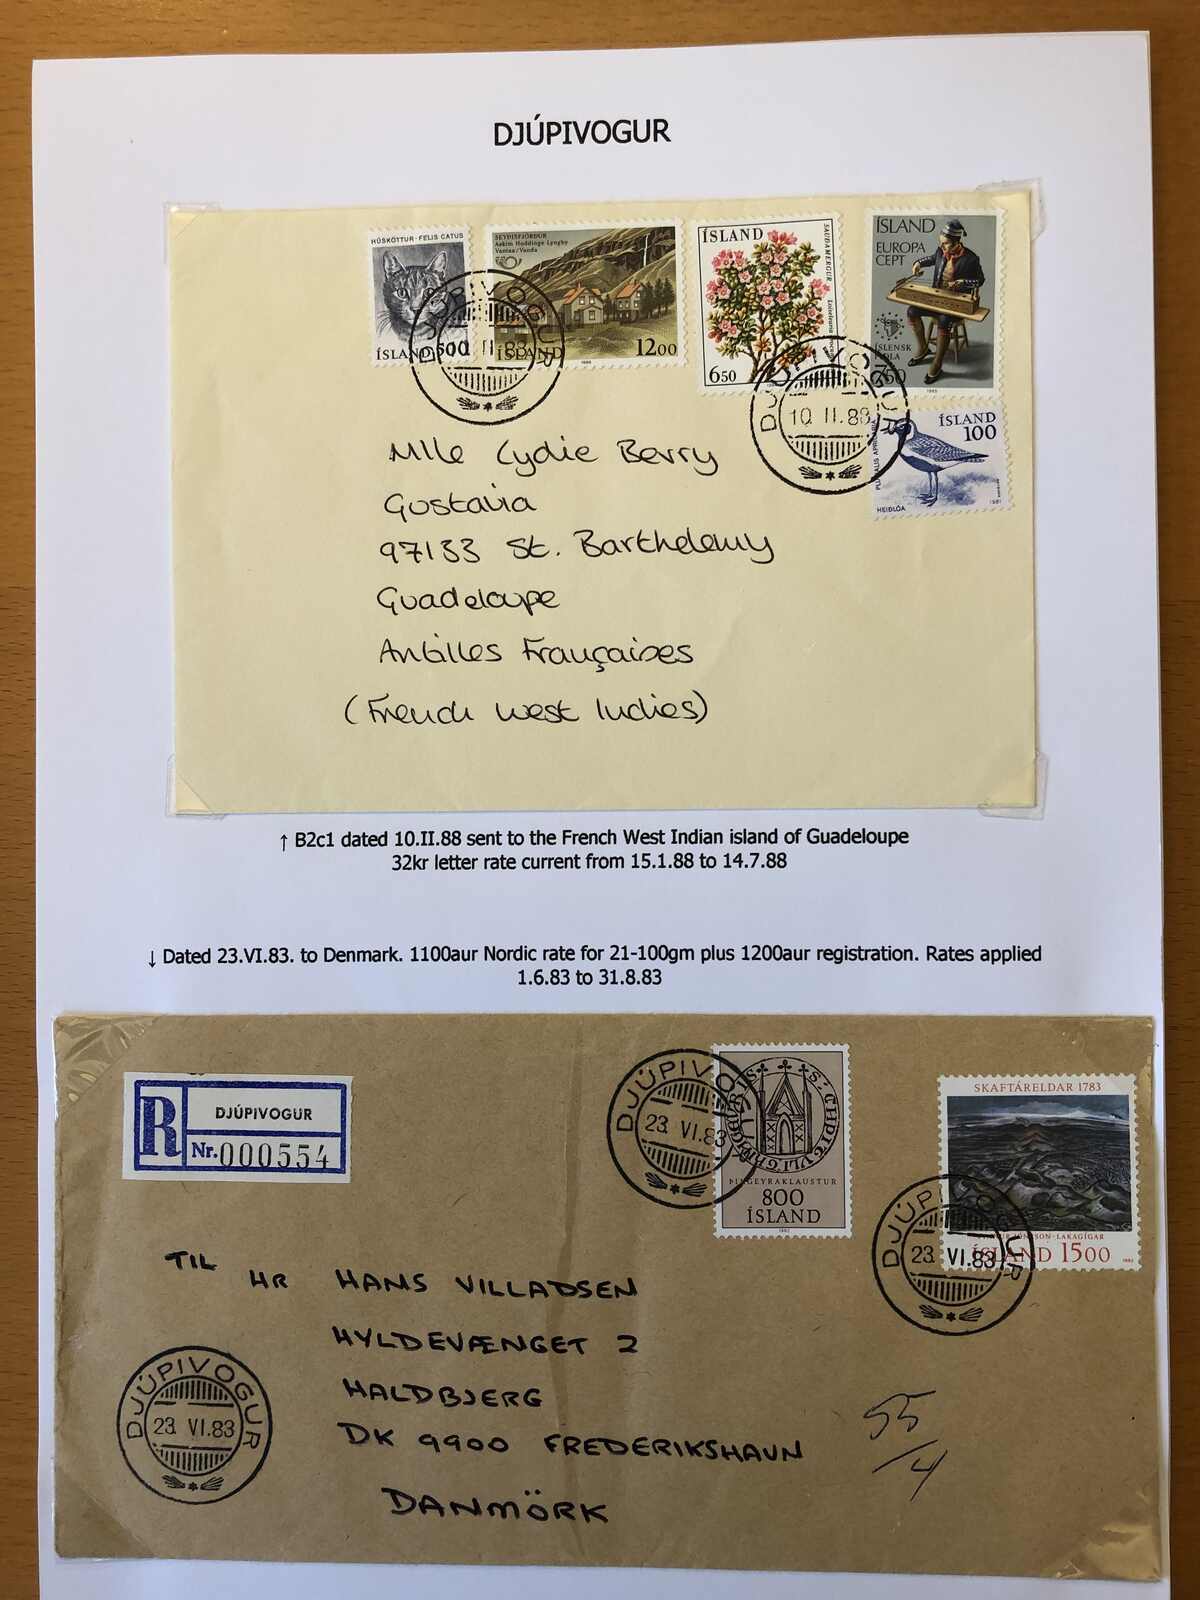 DJÚPIVOGUR
HÚSKÖTTUR · FELIS CATUS
ÍSLAND 500
SEYDISFJÖRÐUR
Askim Huddinge Lyngby
Vantaa/Vanda
ÍSLAND 12.00
1986
ÍSLAND
SAUDAMERGUR
6 50
ÍSLAND
EUROPA
CEPT
ÍSLENSK
1985
ÍSLAND
100
PLUVIALIS APRICARIA
HEIÐLÓA
1981
DJÚPIVOGUR
II.88
DJÚPIVOGUR
10. II.88
Mlle Lydie Berry
Gustavia
97133 St. Barthelemy
Guadeloupe
Antilles Françaises
(French West Indies)
↑ B2c1 dated 10.II.88 sent to the French West Indian island of Guadeloupe
32kr letter rate current from 15.1.88 to 14.7.88
↓ Dated 23.VI.83. to Denmark. 1100aur Nordic rate for 21-100gm plus 1200aur registration. Rates applied
1.6.83 to 31.8.83
R
DJÚPIVOGUR
Nr. 000554
DJÚPIVOGUR
23. VI.83
ÞINGEYRAKLAUSTUR
800
ÍSLAND
1982
SKAFTÁRELDAR 1783
LAKAGÍGAR
ÍSLAND 1500
DJÚPIVOGUR
23. VI.83
TIL HR HANS VILLADSEN
HYLDEVÆNGET 2
HALDBJERG
DK 9900 FREDERIKSHAVN
DANMÖRK
55
/4
DJÚPIVOGUR
23. VI.83